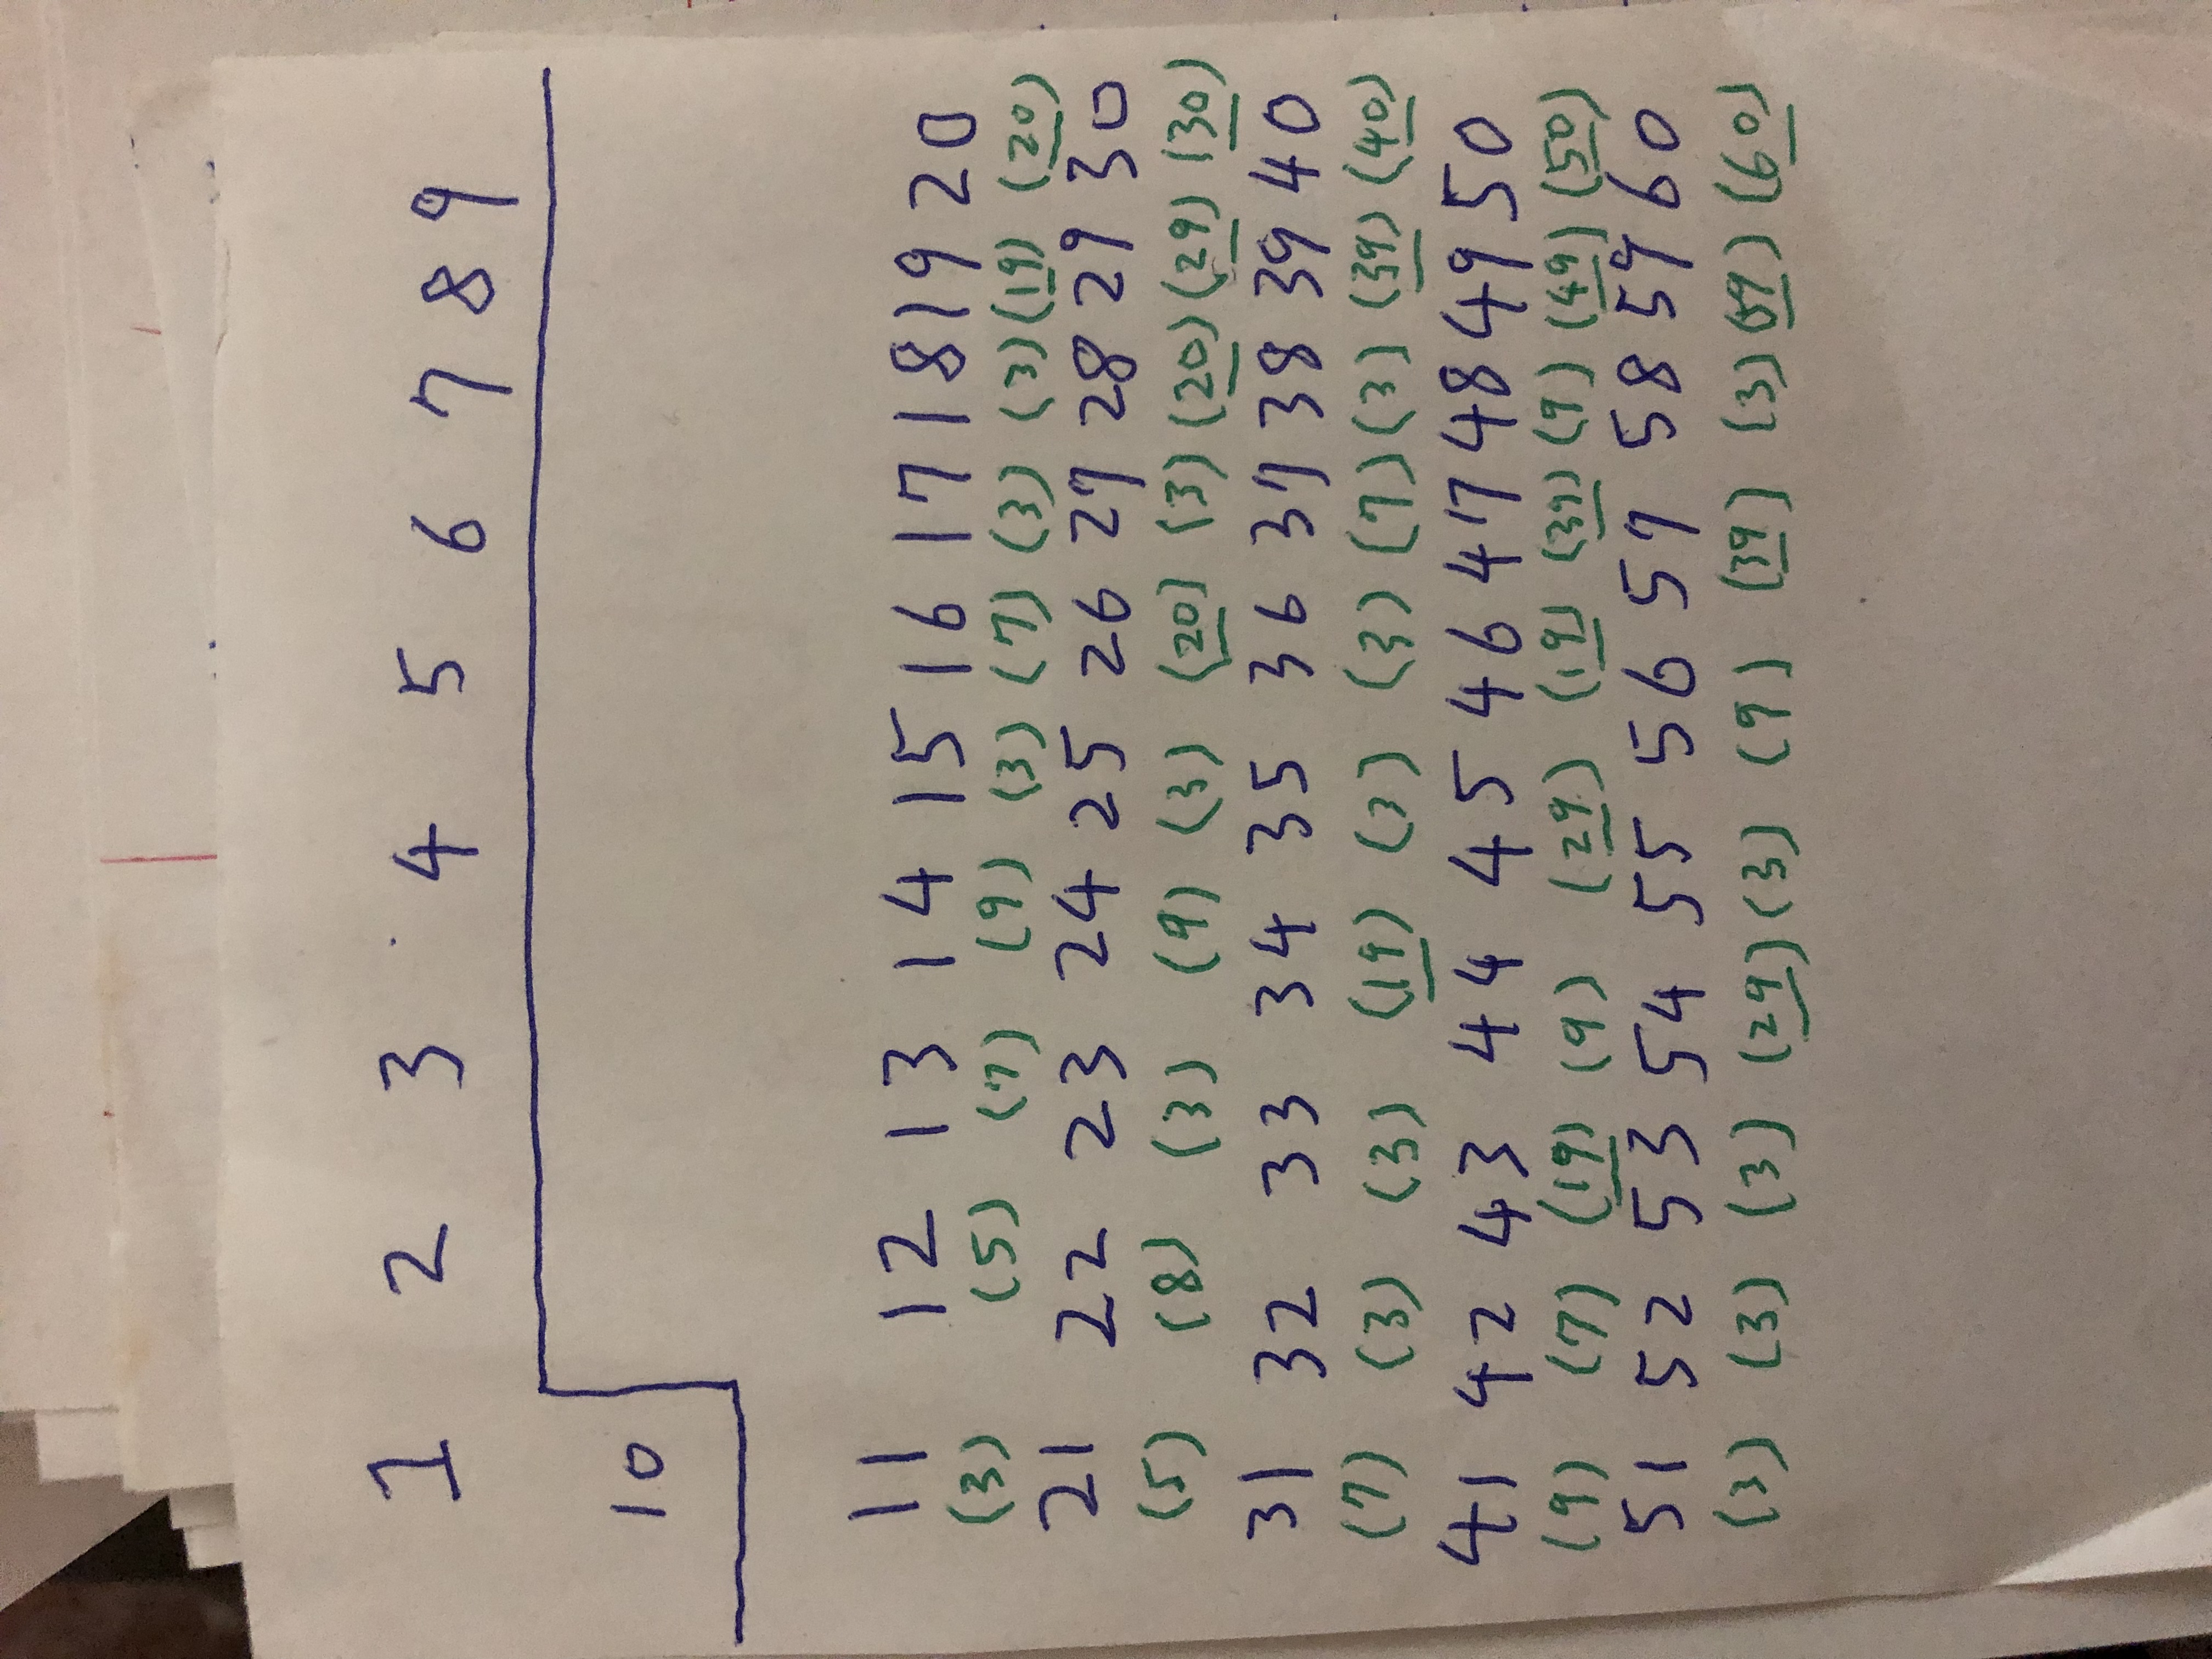 1 2 3 4 5 6 7 8 9
10
11 12 13 14 15 16 17 18 19 20
(3) (5) (7) (9) (3) (7) (3) (3) (19) (20)
21 22 23 24 25 26 27 28 29 30
(5) (8) (3) (9) (3) (20) (3) (20) (29) (30)
31 32 33 34 35 36 37 38 39 40
(7) (3) (3) (19) (3) (3) (7) (3) (39) (40)
41 42 43 44 45 46 47 48 49 50
(9) (7) (19) (9) (29) (19) (39) (9) (49) (50)
51 52 53 54 55 56 57 58 59 60
(3) (3) (3) (29) (3) (9) (39) (3) (59) (60)